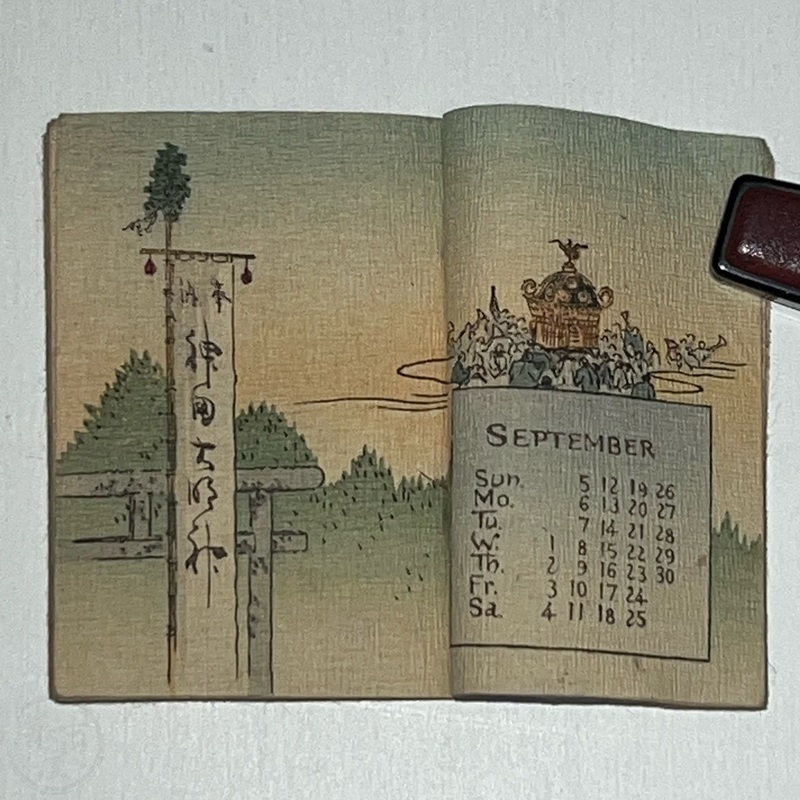 奉納
神田大明神
SEPTEMBER
Sun. 5 12 19 26
Mo. 6 13 20 27
Tu. 7 14 21 28
W. 1 8 15 22 29
Th. 2 9 16 23 30
Fr. 3 10 17 24
Sa. 4 11 18 25